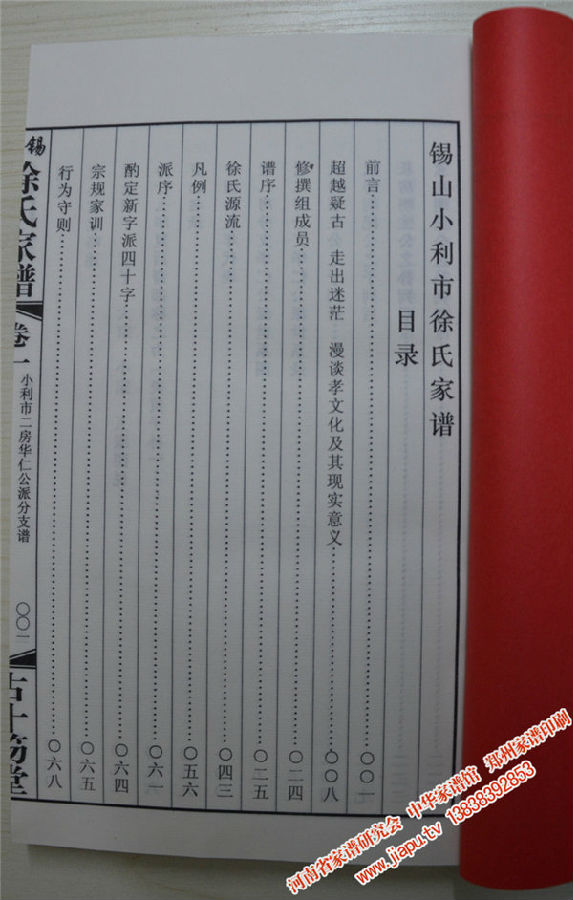 锡山小利市徐氏家谱
目录
前言 〇〇一
超越疑古 走出迷茫 漫谈孝文化及其现实意义 〇〇八
修撰组成员 〇二四
谱序 〇二五
徐氏源流 〇四三
凡例 〇五六
派序 〇六一
酌定新字派四十字 〇六四
宗规家训 〇六五
行为守则 〇六八
锡
徐氏家谱
卷一
小利市二房华仁公派分支谱
〇〇一
河南省家谱研究会 中华家谱馆 郑州家谱印刷
www.jiapu.tv 13838392853